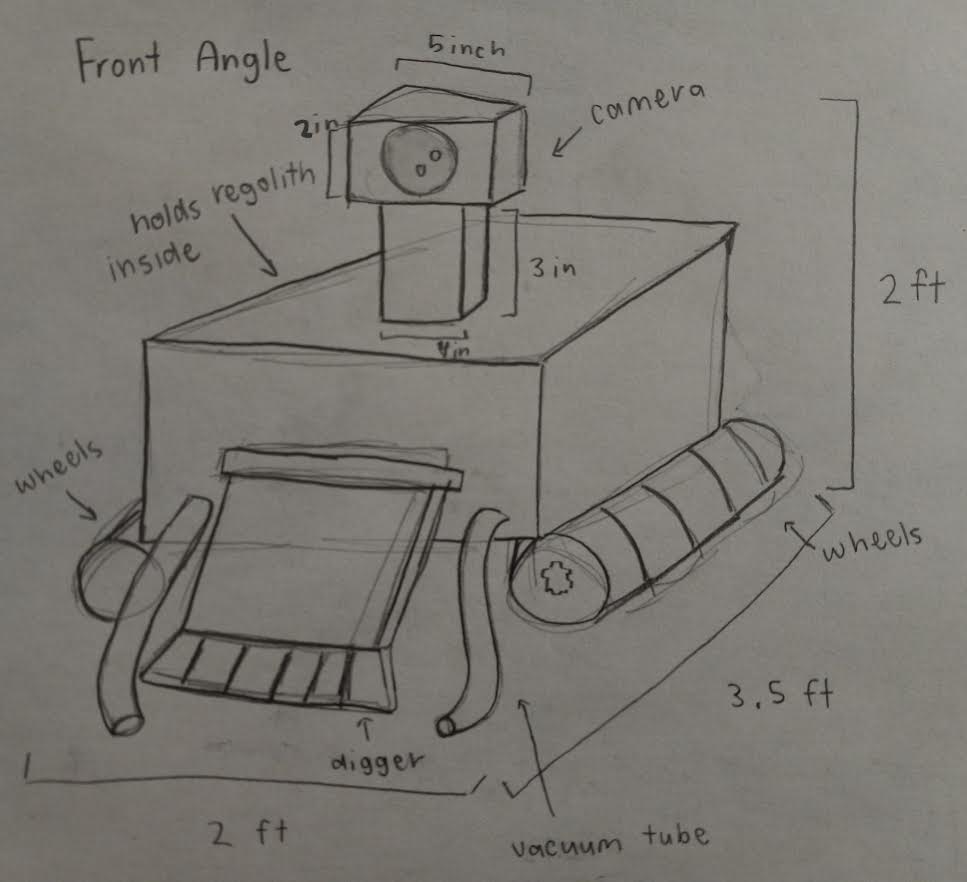 Front Angle
5 inch
2in
camera
holds regolith
inside
3 in
2 ft
4in
wheels
wheels
3.5 ft
digger
2 ft
vacuum tube